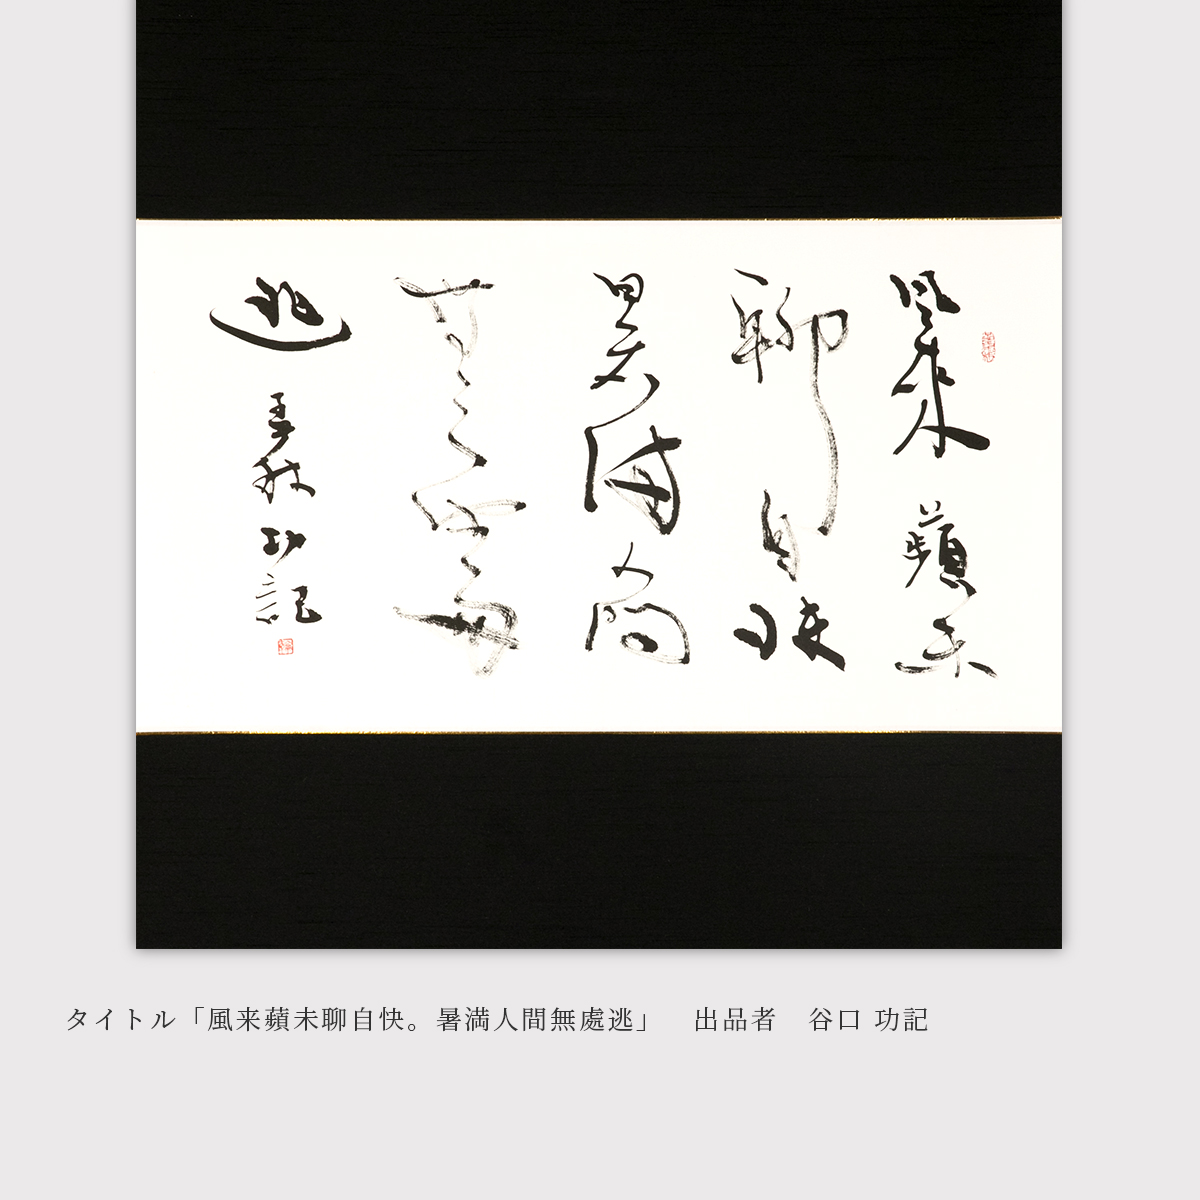 風来蘋未
聊自快
暑満人間
無處逃
功記
タイトル「風来蘋未聊自快。暑満人間無處逃」　出品者　谷口 功記